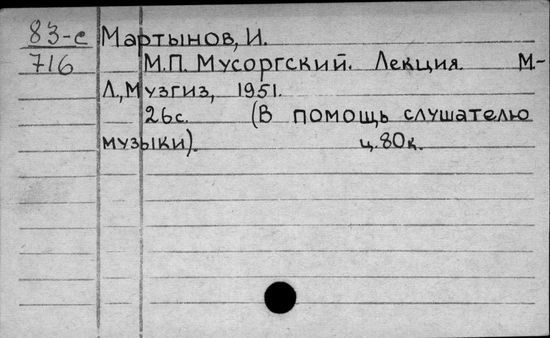 83-с Мартынов, И.
716 М.П. Мусоргский. Лекция. М-
Л, Музгиз, 1951.
26с. (В помощь слушателю
музыки). ц.80к.